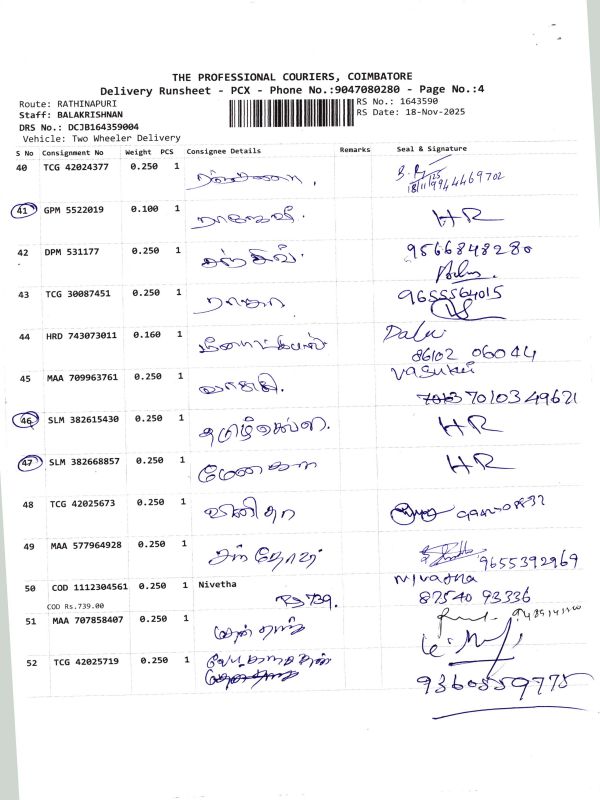 THE PROFESSIONAL COURIERS, COIMBATORE
Delivery Runsheet - PCX - Phone No.:9047080280 - Page No.:4
Route: RATHINAPURI
RS No.: 1643590
Staff: BALAKRISHNAN
RS Date: 18-Nov-2025
DRS No.: DCJB164359004
Vehicle: Two Wheeler Delivery
S No Consignment No Weight PCS Consignee Details Remarks Seal & Signature
40 TCG 42024377 0.250 1
18/11/25 9944469702
41 GPM 5522019 0.100 1 HR
42 DPM 531177 0.250 1 9566848280
43 TCG 30087451 0.250 1 ராஜா 9655564015
44 HRD 743073011 0.160 1
86102 06044
45 MAA 709963761 0.250 1 வாசுகி. Vasuki
7010349621
46 SLM 382615430 0.250 1 HR
47 SLM 382668857 0.250 1 மேனகா HR
48 TCG 42025673 0.250 1 வினிதா
49 MAA 577964928 0.250 1 சந்தோஷ் 9655392969
50 COD 1112304561 0.250 1 Nivetha Nivatha
COD Rs.739.00 Rs 739. 87540 93336
51 MAA 707858407 0.250 1
52 TCG 42025719 0.250 1
9360559775